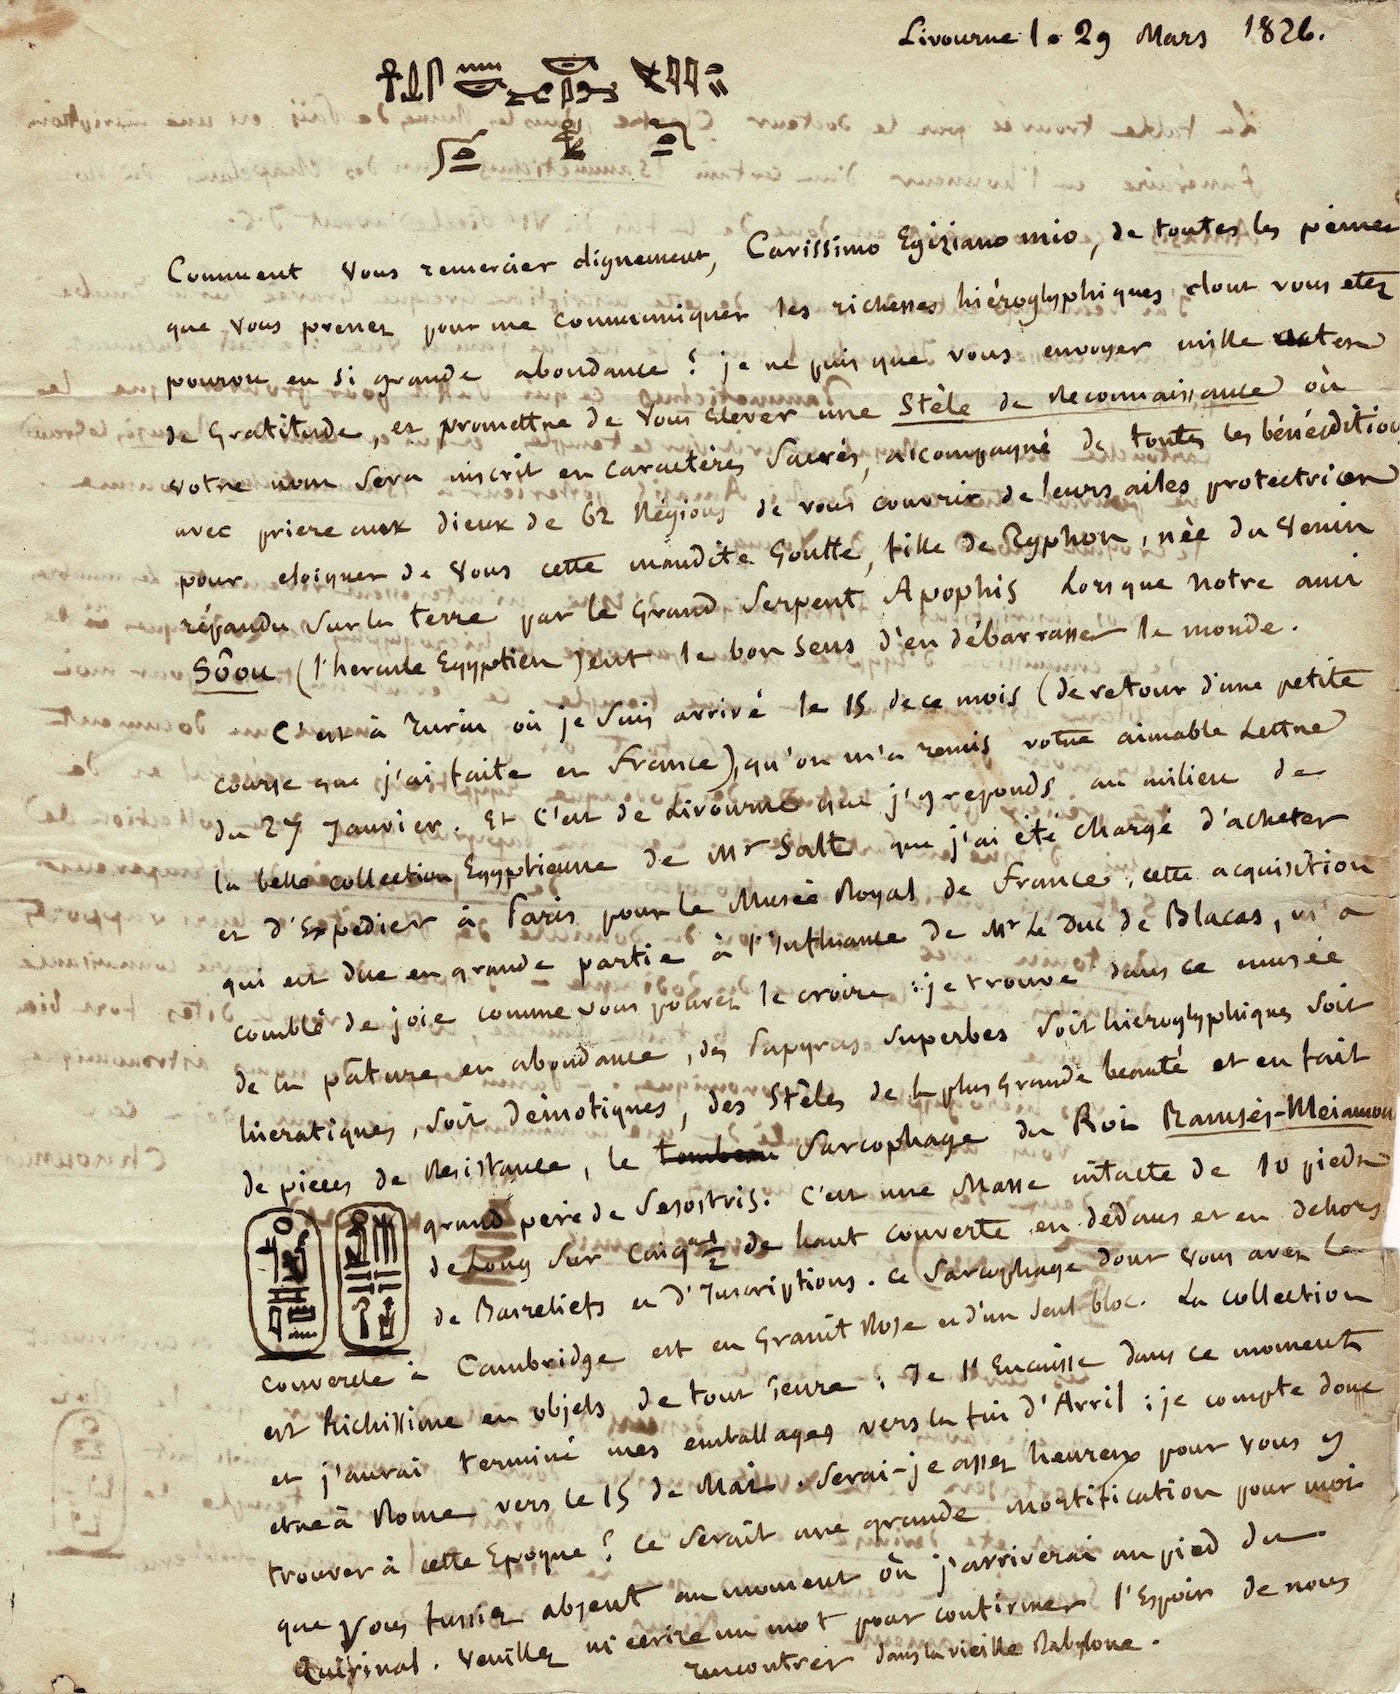 Livourne le 29 Mars 1826.
Comment vous remercier dignement, Carissimo Egiziano mio, de toutes les peines
que vous prenez pour me communiquer les richesses hiéroglyphiques dont vous etes
pourvu en si grande abondance? je ne puis que vous envoyer mille actes
de Gratitude, et promettre de vous elever une Stèle de Reconnaissance où
votre nom sera inscrit en caractères Sacrés, accompagné de toutes les bénédictions
avec priere aux dieux de 62 Régions de vous couvrir de leurs ailes protectrices
pour eloigner de vous cette maudite Goutte, fille de Typhon, née du Venin
répandu sur la terre par le Grand Serpent Apophis lorsque notre ami
Sôou (l'hercule Egyptien) eut le bon sens d'en débarrasser le monde.
C'est à Turin où je suis arrivé le 15 de ce mois (de retour d'une petite
course que j'ai faite en France), qu'on m'a remis votre aimable Lettre
du 27 Janvier. Et C'est de Livourne que j'y reponds au milieu de
la belle collection Egyptienne de Mr Salt que j'ai été chargé d'acheter
et d'Expedier à Paris pour le Musée Royal de France. cette acquisition
qui est due en grande partie à l'Influance de Mr Le Duc de Blacas, m'a
comblé de joie comme vous pouvez le croire : je trouve dans ce musée
de la pâture en abondance, des Papyrus superbes soit hieroglyphiques soit
hieratiques, soit démotiques, des Stèles de la plus Grande beauté et en fait
de pieces de Resistance, le tombeau Sarcophage du Roi Ramsès-Meiamoun
grand pere de Sesostris. C'est une Masse intacte de 10 pieds
de Long sur Cinq 1/2 de haut couverte en dedans et en dehors
de Basreliefs et d'Inscriptions. Ce Sarcophage dont vous avez le
couvercle à Cambridge est en Granit Rose et d'un seul bloc. La collection
est Richissime en objets de tout Genre : Je l'Encaisse dans ce moment
et j'aurai terminé mes emballages vers la fin d'Avril : je compte donc
etre à Rome vers le 15 de Mai. Serai-je assez heureux pour vous y
trouver à cette Epoque? Ce serait une grande mortification pour moi
que vous fussiez absent au moment où j'arriverai au pied du
Quirinal. Veuillez m'ecrire un mot pour confirmer l'Espoir de nous
rencontrer dans la vieille Babylone.